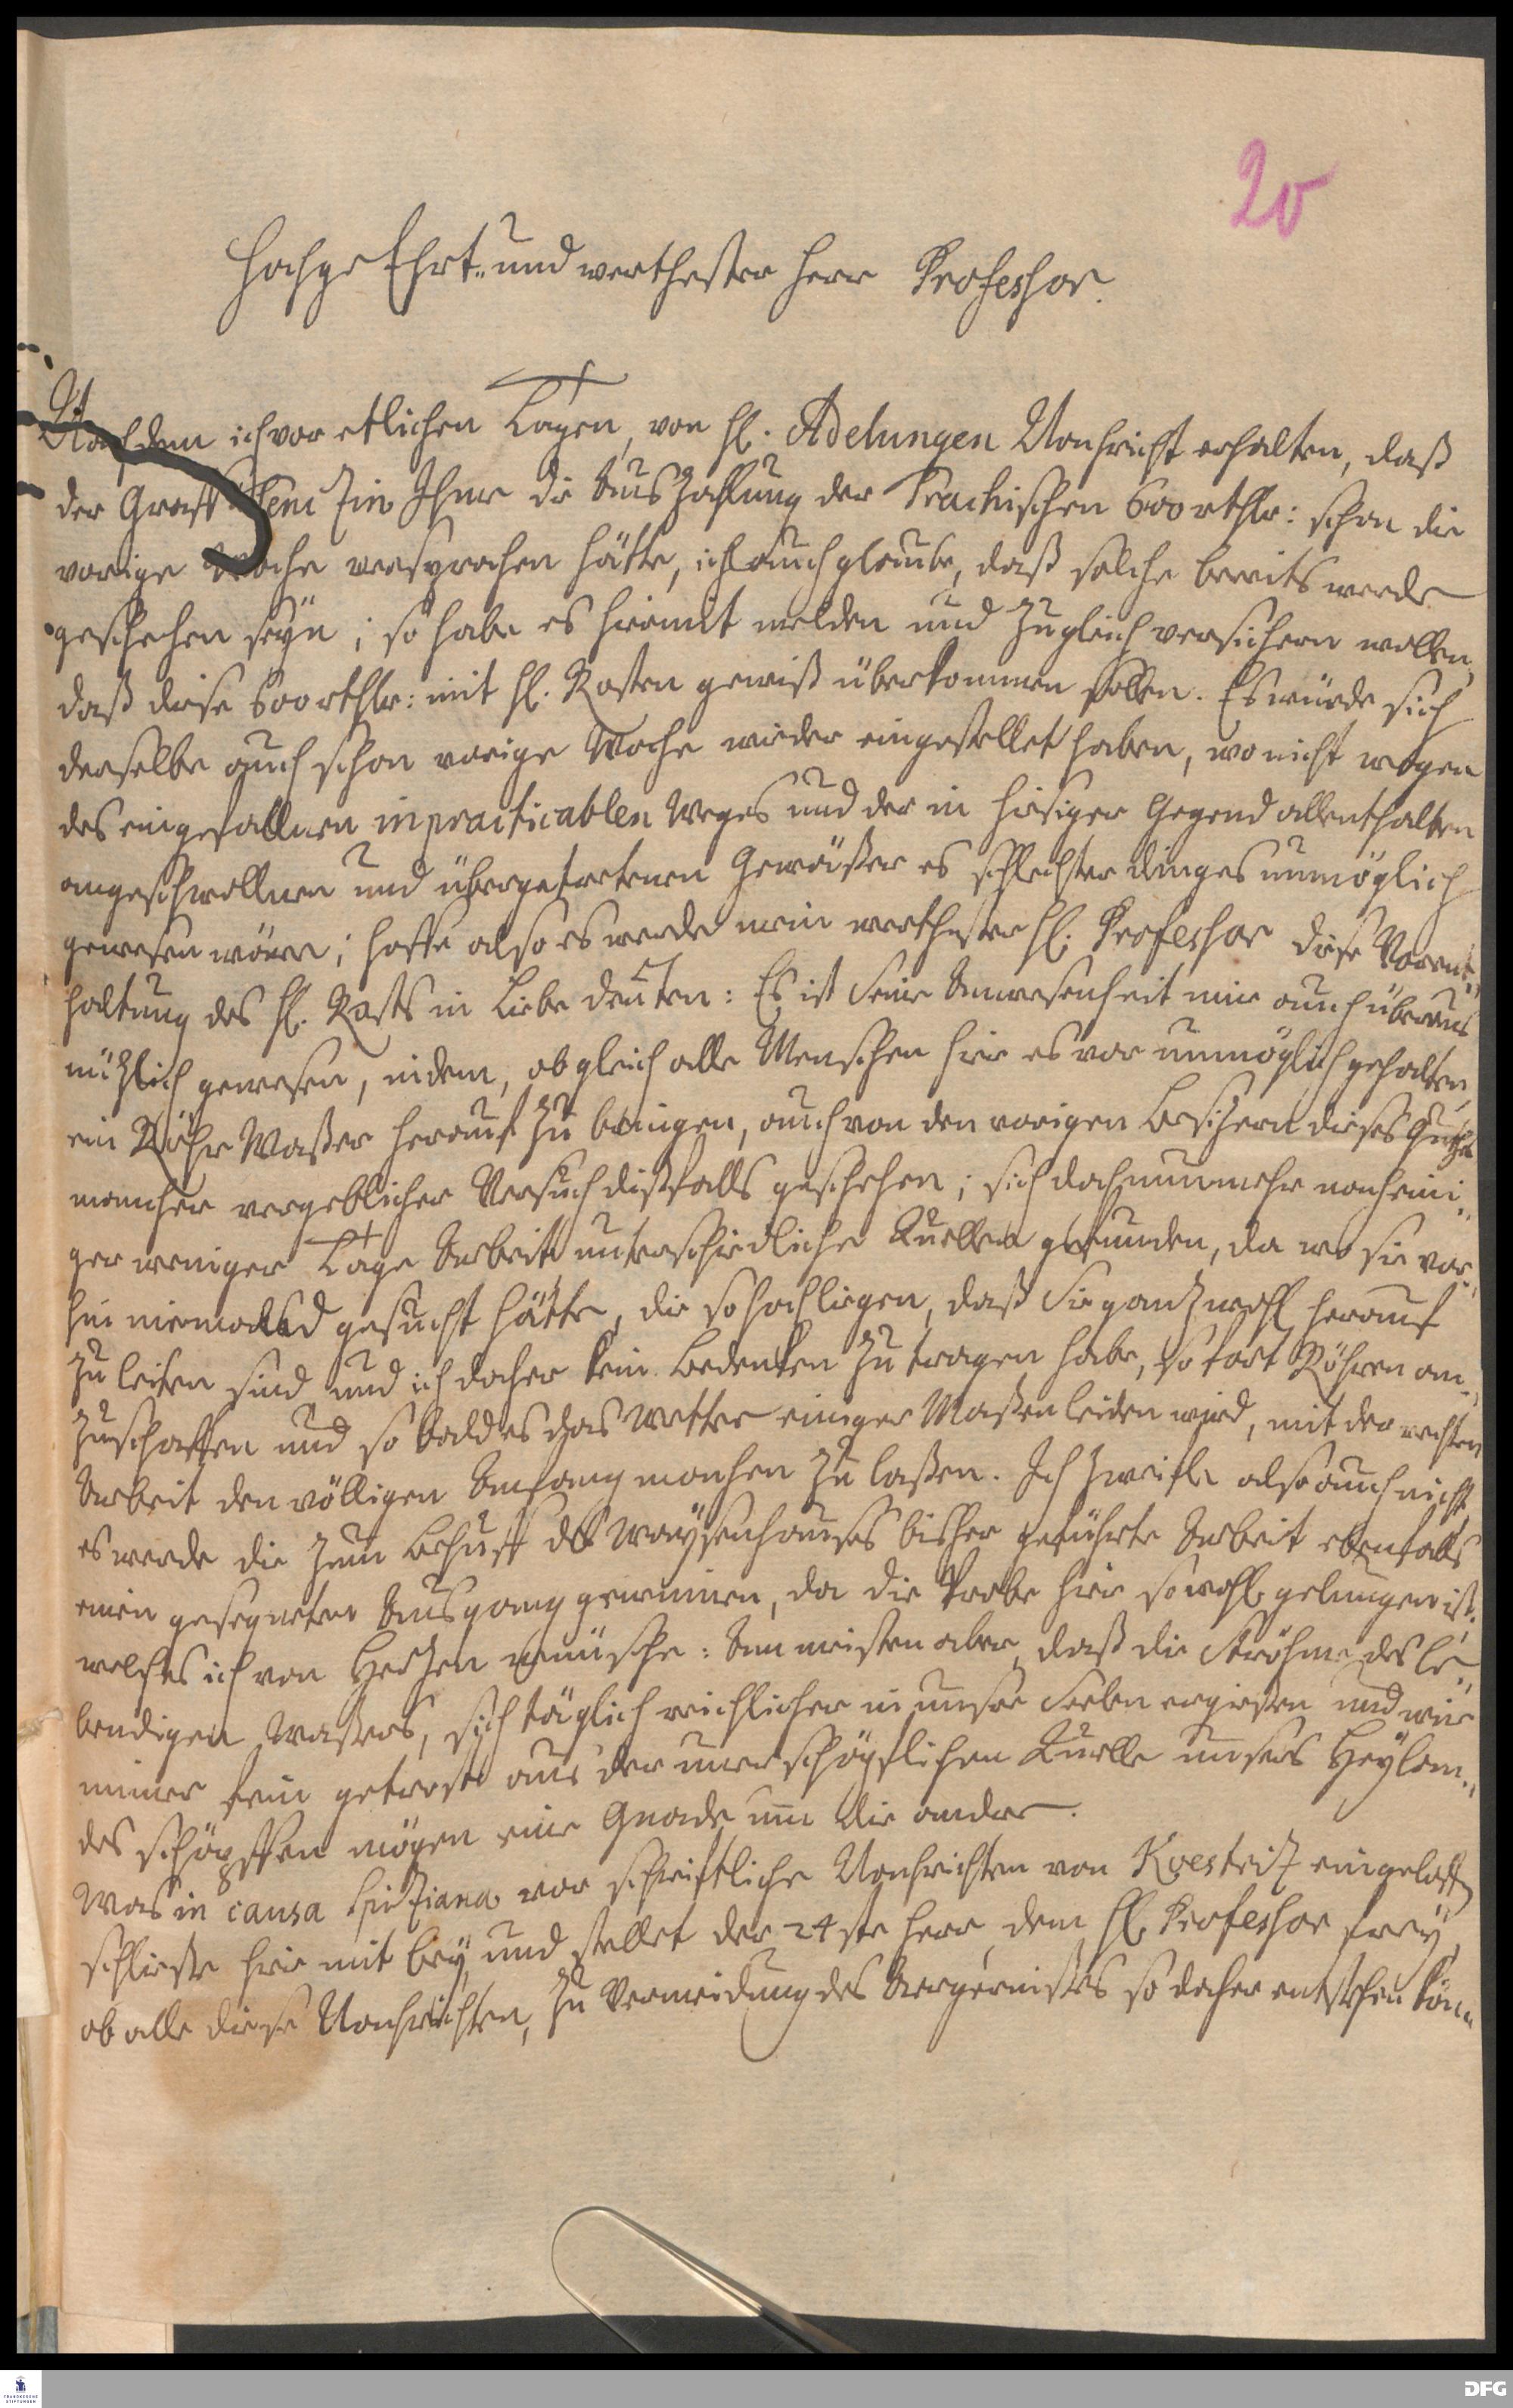 20
HochgeEhrt- und werthester Herr Professor.
Nachdem ich vor etlichen Tagen, von H. Adelungen Nachricht erhalten, daß
der Graff Ihme die Auszahlung der Trachischen 600 rthlr: schon die
vorige Woche versprochen hätte, ich auch glaube, daß solche bereits werde
geschehen seyn; so habe es hiermit melden und zugleich versichern wollen,
daß diese 600 rthlr: mit H. Rosten gewiß überkommen sollen. Es würde sich
derselbe auch schon vorige Woche wieder eingestellet haben, wo nicht wegen
des eingefallnen inpracticablen Weges und der in hiesiger Gegend allenthalben
angeschwollnen und übergetretenen Gewäßer es schlechter dinges unmöglich
gewesen wäre; hoffe also es werde mein werthester H. Professor diese Vorent-
haltung des H. Rosts in Liebe deuten: Es ist seine Anwesenheit mir auch überaus
nützlich gewesen, indem, obgleich alle Menschen hier es vor unmöglich gehalten,
ein Röhr Waßer herauf zu bringen, auch von den vorigen Besitzern dieses Guthes
mancher vergeblicher Versuch dißfalls geschehen; sich doch nunmehr nach eini-
ger weniger Tage Arbeit unterschiedliche Quellen gefunden, da wo sie vor-
hin niemand gesucht hätte, die so hoch liegen, daß Sie gantz wohl herauf
zu leiten sind und ich daher kein Bedenken zu tragen habe, so fort Röhren an-
zuschaffen und so bald es das Wetter einiger Maßen leiden wird, mit der rechten
Arbeit den völligen Anfang machen zu laßen. Ich zweifle also auch nicht,
es werde die zum Behuff des Waysenhauses bisher geführte Arbeit ebenfalls
einen gesegneten Ausgang gewinnen, da die Probe hier so wohl gelungen ist.
welches ich von Hertzen wünsche: Am meisten aber, daß die Ströhme des le-
bendigen Waßers, sich täglich reichlicher in unsre Seelen ergießen und wir
immer fein getrost aus der unerschöpflichen Quelle unsers Heylan-
des schöpffen mögen eine Gnade um die andre.
Was in causa Spitziana vor schriftliche Nachrichten von Koestritz eingeloffen
schließe hier mit bey und stellet der 24ste Herr, dem H. Professor frey,
ob alle diese Nachrichten, zu Vermeidung des Aergernißes so daher entstehen könn